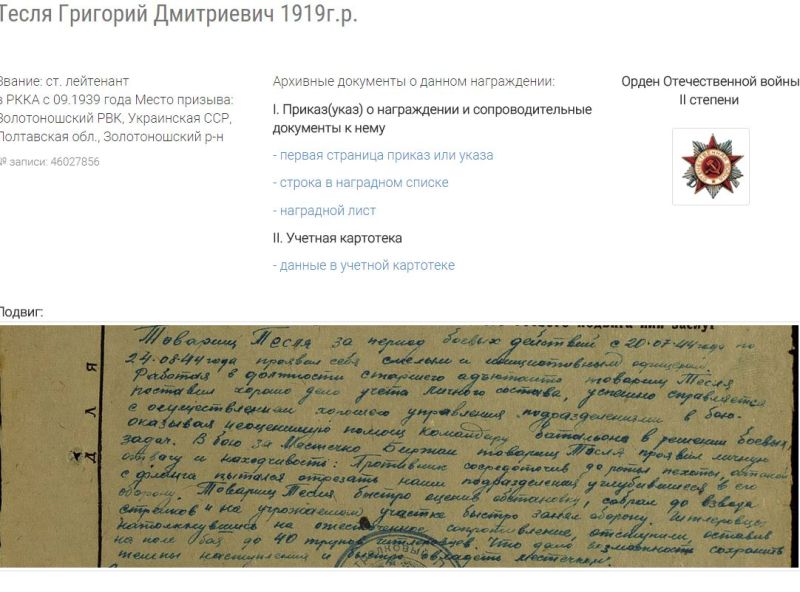 Тесля Григорий Дмитриевич 1919г.р.
Звание: ст. лейтенант
в РККА с 09.1939 года Место призыва:
Золотоношский РВК, Украинская ССР,
Полтавская обл., Золотоношский р-н
№ записи: 46027856
Архивные документы о данном награждении:
I. Приказ(указ) о награждении и сопроводительные
документы к нему
- первая страница приказ или указа
- строка в наградном списке
- наградной лист
II. Учетная картотека
- данные в учетной картотеке
Орден Отечественной войны
II степени
Подвиг:
Товарищ Тесля за период боевых действий с 20.07.44 года по
24.08.44 года проявил себя смелым и инициативным офицером.
Работая в должности старшего адъютанта товарищ Тесля
поставил хорошо дело учета личного состава, успешно справляется
с осуществлением хорошего управления подразделениями в бою.
оказывая неоценимую помощь командиру батальона в решении боевых
задач. В бою за местечко Биржай товарищ Тесля проявил личную
отвагу и находчивость: Противник сосредоточив до роты пехоты,
с фланга пытался отрезать наши подразделения углубившиеся в его
оборону. Товарищ Тесля быстро оценив обстановку, собрал до взвода
стрелков и на угрожаемом участке быстро занял оборону. Гитлеровцы
натолкнувшись на ожесточенное сопротивление, отступили, оставив
на поле боя до 40 трупов гитлеровцев. Что дало возможность сохранить
темпы наступления и быстро овладеть местечком.
Д Л Я